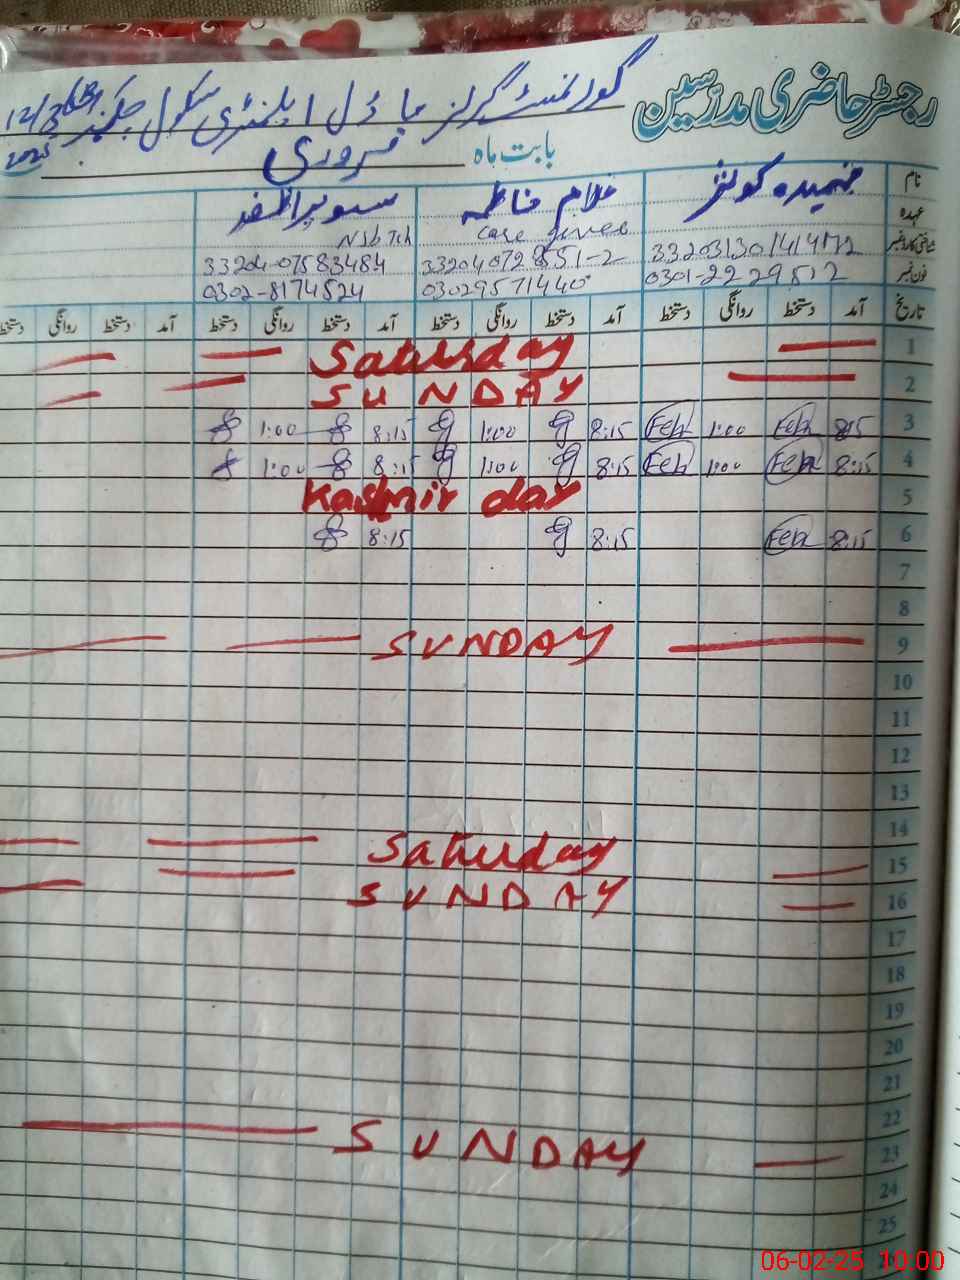 رجسٹر حاضری مدرسین
گورنمنٹ گرلز ماڈل ایلیمنٹری سکول
بابت ماہ فروری 2025
نام فہمیدہ کوثر غلام فاطمہ
عہدہ Care giver Nsb Tch
شناختی کارڈ نمبر 33204-07583484
فون نمبر 0301-2229512 03029571440 0302-8174524
تاریخ آمد دستخط روانگی دستخط آمد دستخط روانگی دستخط آمد دستخط روانگی دستخط آمد دستخط روانگی دستخط
1 Saturday
2 SUNDAY
3 8:15 Feh 1:00 Feh 8:15 1:00 8:15 1:00
4 8:15 Feh 1:00 Feh 8:15 1:00 8:15 1:00
5 Kashmir day
6 8:15 Feh 8:15 8:15
7
8
9 SUNDAY
10
11
12
13
14
15 Saturday
16 SUNDAY
17
18
19
20
21
22
23 SUNDAY
24
25
06-02-25 10:00